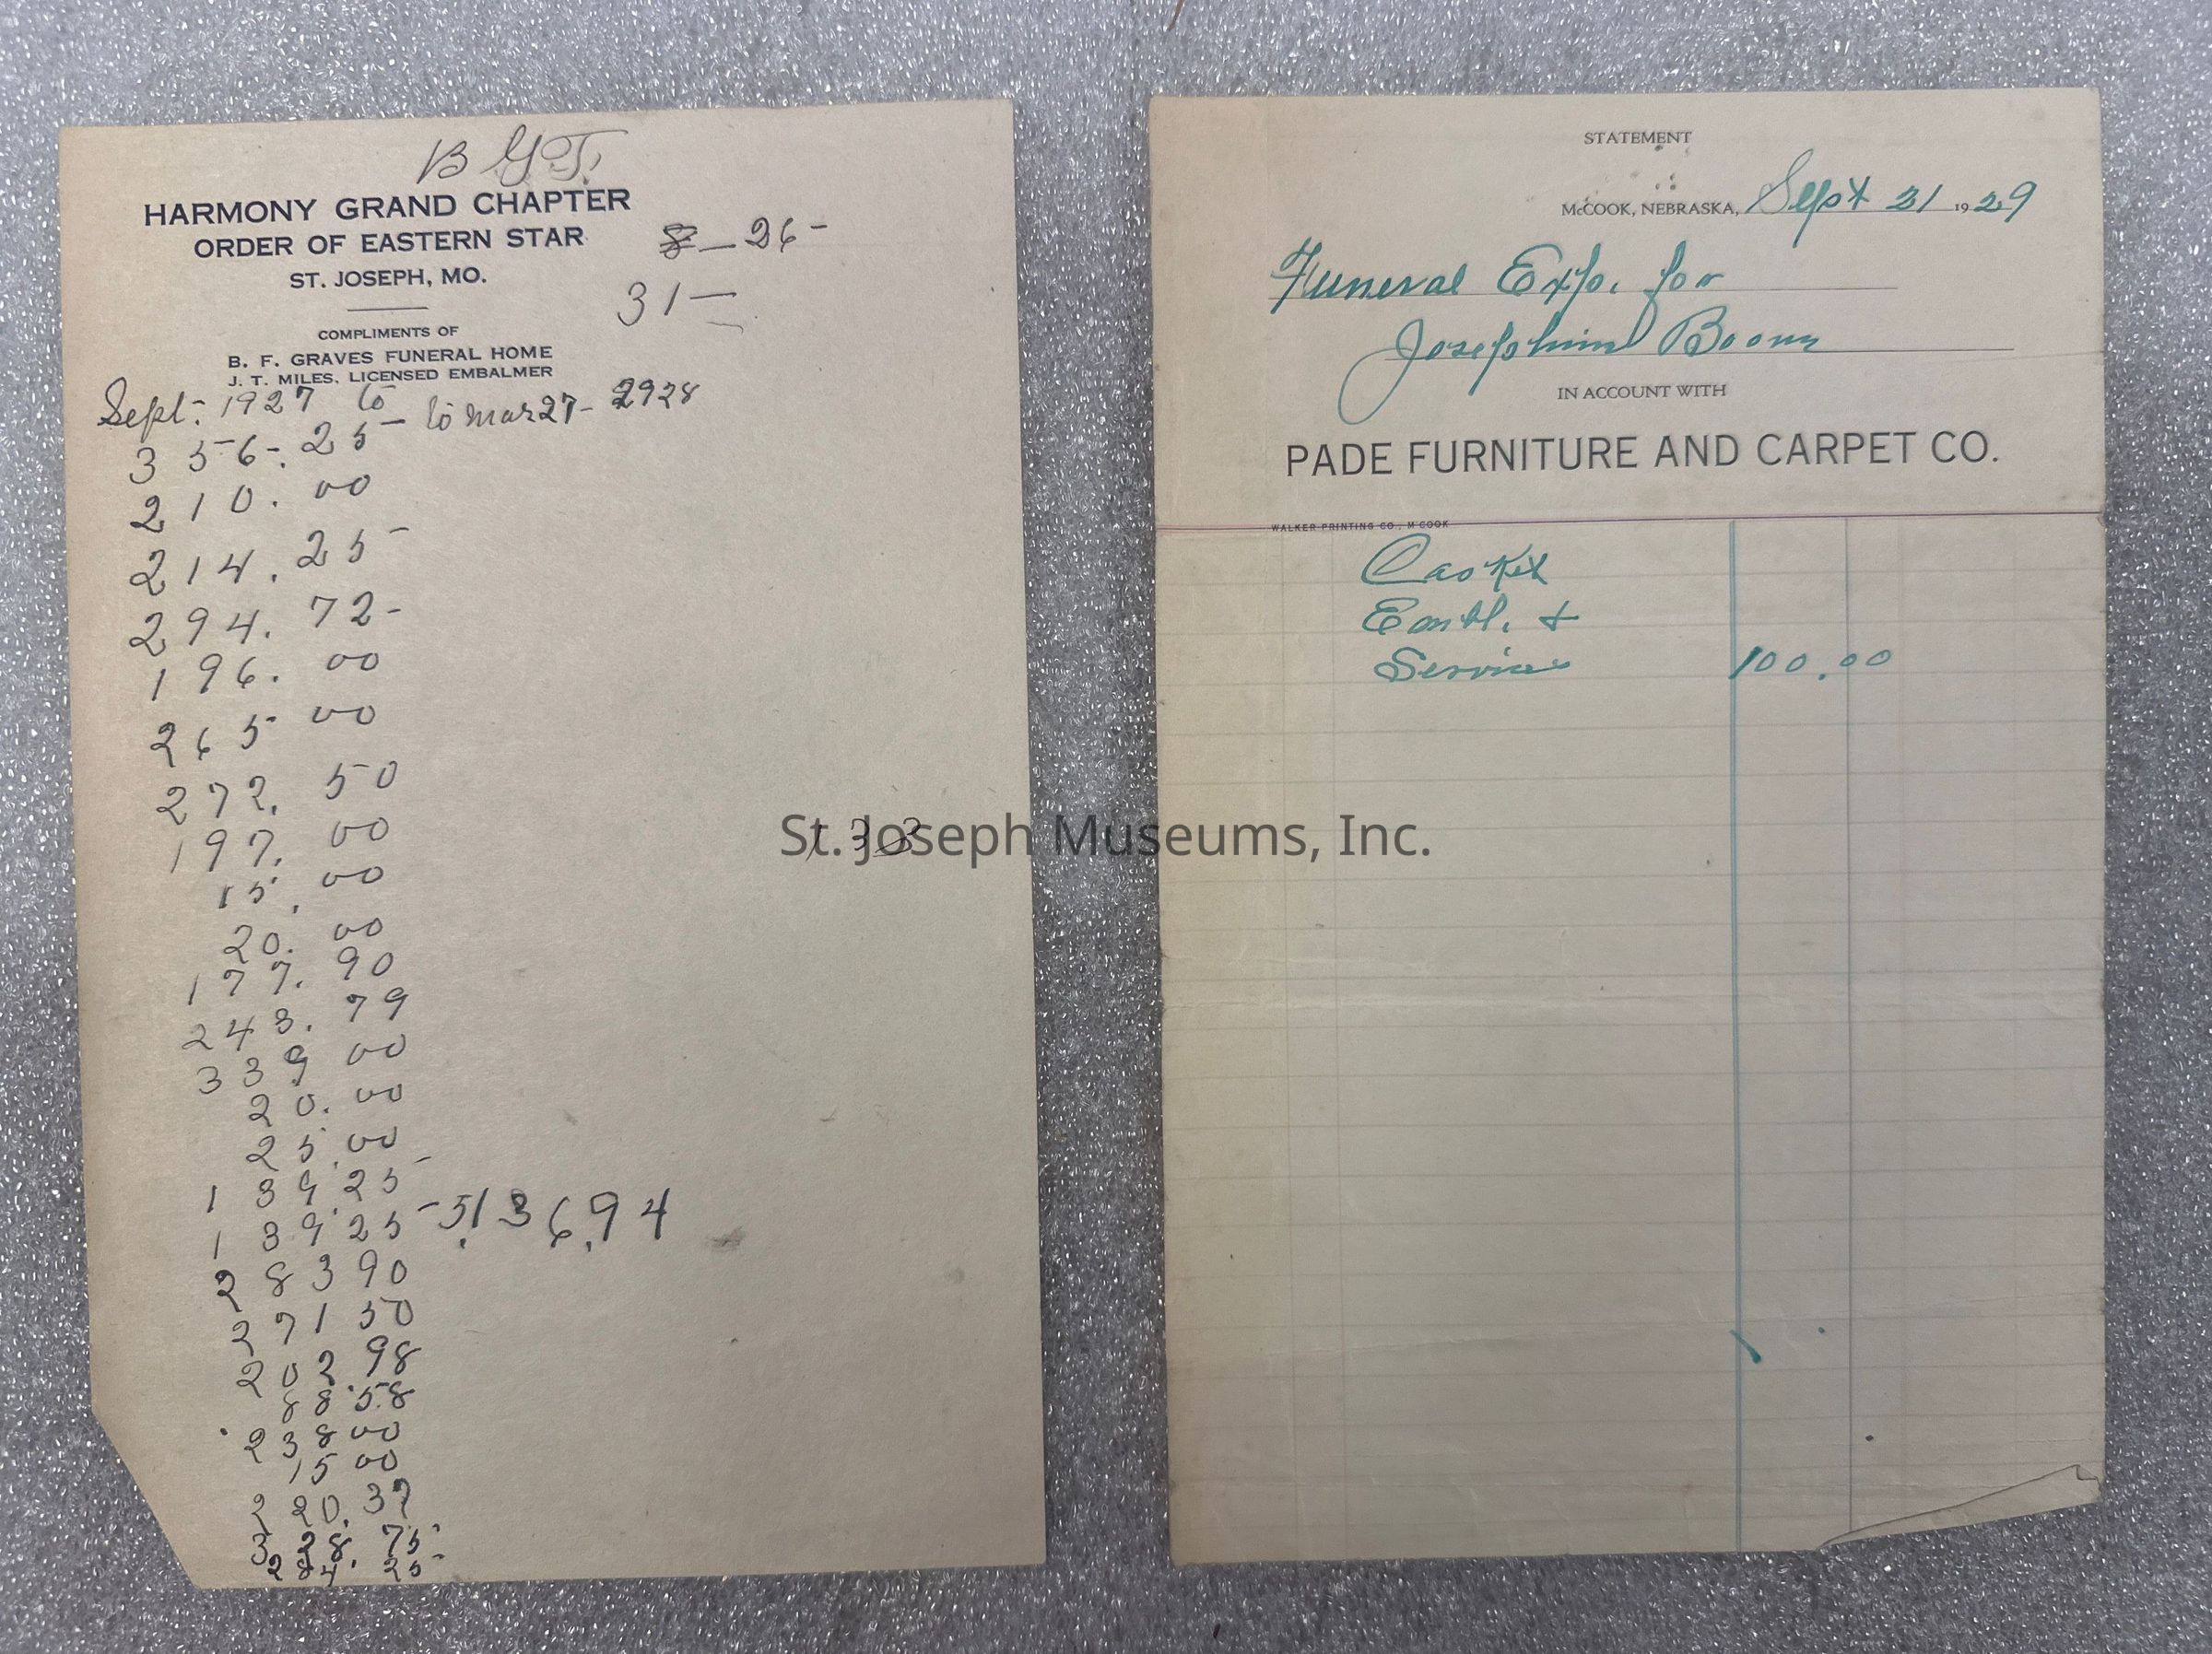 B G T.
HARMONY GRAND CHAPTER
ORDER OF EASTERN STAR
ST. JOSEPH, MO.
8 - 26 -
31 -
COMPLIMENTS OF
B. F. GRAVES FUNERAL HOME
J. T. MILES, LICENSED EMBALMER
Sept. 1927 to
to Mar 27 - 2928
356. 25
210. 00
214. 25
294. 72
196. 00
265 00
272. 50
197. 00
15. 00
20. 00
177. 90
243. 79
339 00
20. 00
25. 00
139. 25
139. 25
5,136.94
283 90
271 50
202.98
88.58
238 00
15 00
220. 37
328. 75
284. 25
133
STATEMENT
McCOOK, NEBRASKA, Sept 21 1929
Funeral Exp. for
Josephine Boone
IN ACCOUNT WITH
PADE FURNITURE AND CARPET CO.
WALKER PRINTING CO., M'COOK
Casket
Embl. +
Services 100.00
St. Joseph Museums, Inc.